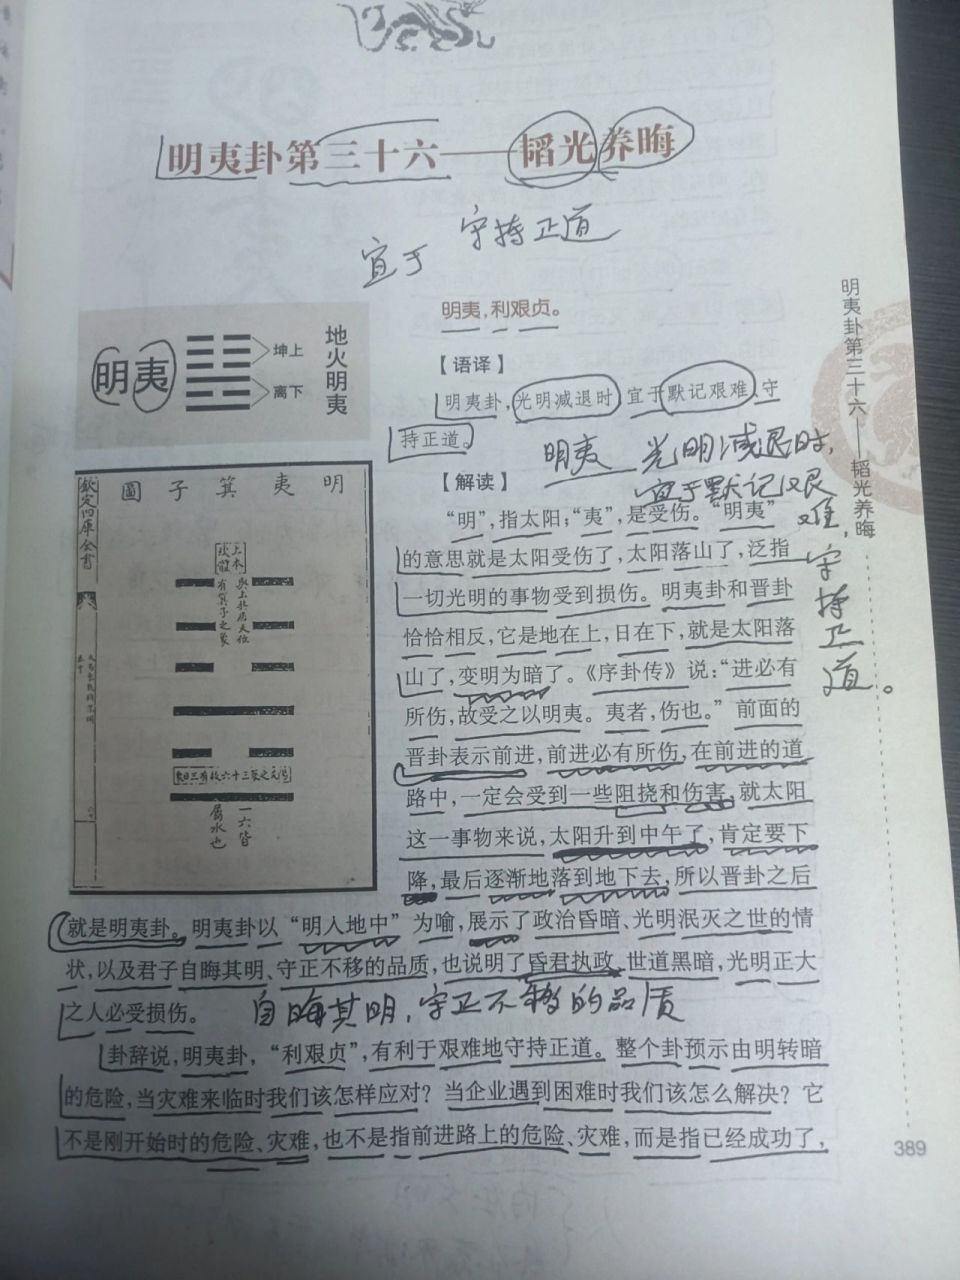 明夷卦第三十六——韬光养晦
守持正道
宜于
明夷
坤上
离下
地火明夷
明夷，利艰贞。
【语译】
明夷卦，光明减退时，宜于默记艰难，守
持正道。
明夷 光明减退时，
宜于默记艰
难，守持正道。
【解读】
“明”，指太阳；“夷”，是受伤。“明夷”
的意思就是太阳受伤了，太阳落山了，泛指
一切光明的事物受到损伤。明夷卦和晋卦
恰恰相反，它是地在上，日在下，就是太阳落
山了，变明为暗了。《序卦传》说：“进必有
所伤，故受之以明夷。夷者，伤也。”前面的
晋卦表示前进，前进必有所伤，在前进的道
路中，一定会受到一些阻挠和伤害，就太阳
这一事物来说，太阳升到中午了，肯定要下
降，最后逐渐地落到地下去，所以晋卦之后
就是明夷卦。明夷卦以“明入地中”为喻，展示了政治昏暗、光明泯灭之世的情
状，以及君子自晦其明、守正不移的品质，也说明了昏君执政，世道黑暗，光明正大
之人必受损伤。
自晦其明，守正不移的品质
卦辞说，明夷卦，“利艰贞”，有利于艰难地守持正道。整个卦预示由明转暗
的危险，当灾难来临时我们该怎样应对？当企业遇到困难时我们该怎么解决？它
不是刚开始时的危险、灾难，也不是指前进路上的危险、灾难，而是指已经成功了，
明夷箕子圖
欽定四庫全書
有箕子之象
一六皆
屬水也
明夷卦第三十六——韬光养晦
389